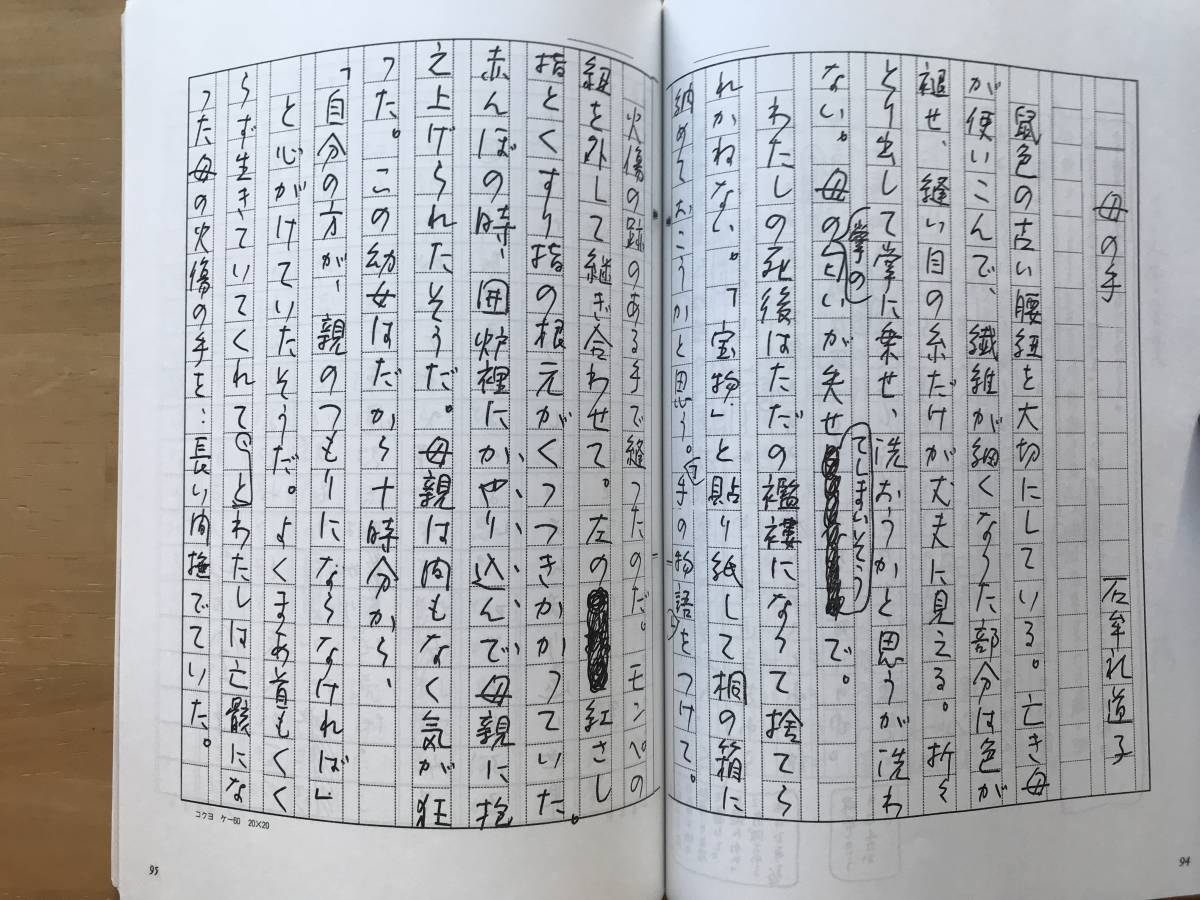 母の手
石牟礼道子
鼠色の古い腰紐を大切にしている。亡き母
が使いこんで、繊維が細くなった部分は色が
褪せ、縫い目の糸だけが丈夫に見える。折々
とり出して掌に乗せ、洗おうかと思うが洗わ
ない。母の掌の匂いが失せてしまいそうで。
わたしの死後はただの襤褸になって捨てら
れかねない。「宝物」と貼り紙して桐の箱に
納めておこうかと思う。「手の物語」をつけて。
火傷の跡のある手で縫ったのだ。モンペの
紐を外して継ぎ合わせて。左の紅さし
指とくすり指の根元がくっつきかかっていた。
赤んぼの時、囲炉裡にかやり込んで母親に抱
え上げられたそうだ。母親は間もなく気が狂
った。この幼女はだから十時分から、
「自分の方が、親のつもりにならなければ」
と心がけていたそうだ。よくまあ首もくく
らず生きていてくれて、とわたしは亡骸にな
った母の火傷の手を‥長い間撫でていた。
コクヨ ケー60 20×20
95
94